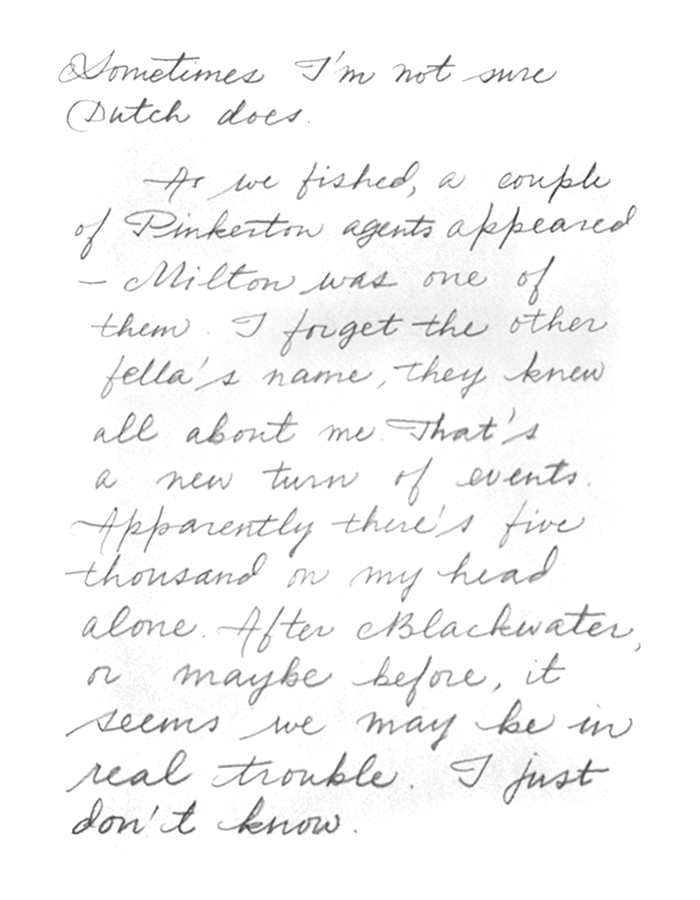 Sometimes I'm not sure
Dutch does.
As we fished, a couple
of Pinkerton agents appeared
– Milton was one of
them. I forget the other
fella's name, they knew
all about me. That's
a new turn of events.
Apparently there's five
thousand on my head
alone. After Blackwater,
or maybe before, it
seems we may be in
real trouble. I just
don't know.